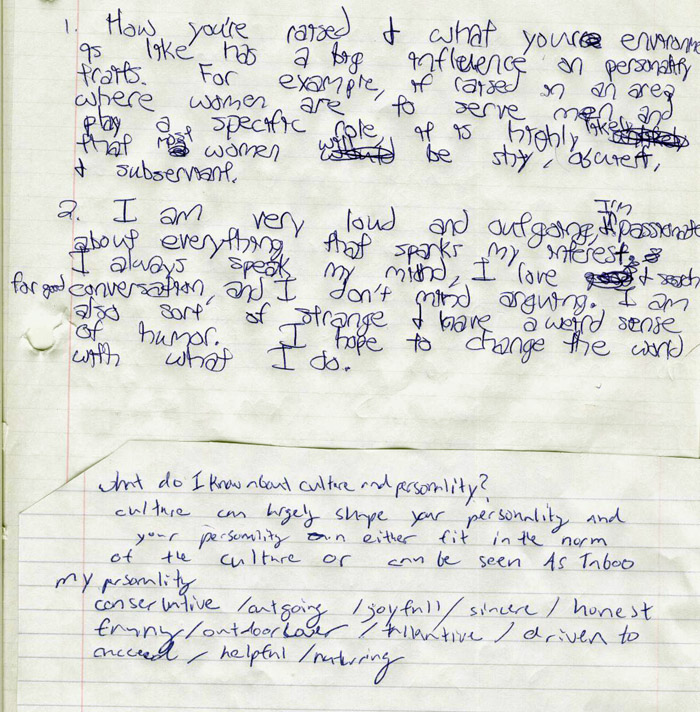 1. How you're raised & what your environme
is like has a big influence on personality
traits. For example, if raised in an area
where women are to serve men and
play a specific role, it is highly likely
that most women will be shy, obscure,
& subservant.
2. I am very loud and outgoing, I'm passionate
about everything that sparks my interest.
I always speak my mind, I love & search
for good conversation, and I don't mind arguing. I am
also sort of strange & have a weird sense
of humor. I hope to change the world
with what I do.
What do I know about culture and personality?
culture can largely shape your personality and
your personality can either fit in the norm
of the culture or can be seen As Taboo
my personality
conservative / outgoing / joyfull / sincere / honest
funny / outdoor lover / / driven to
succeed / helpful / nurturing